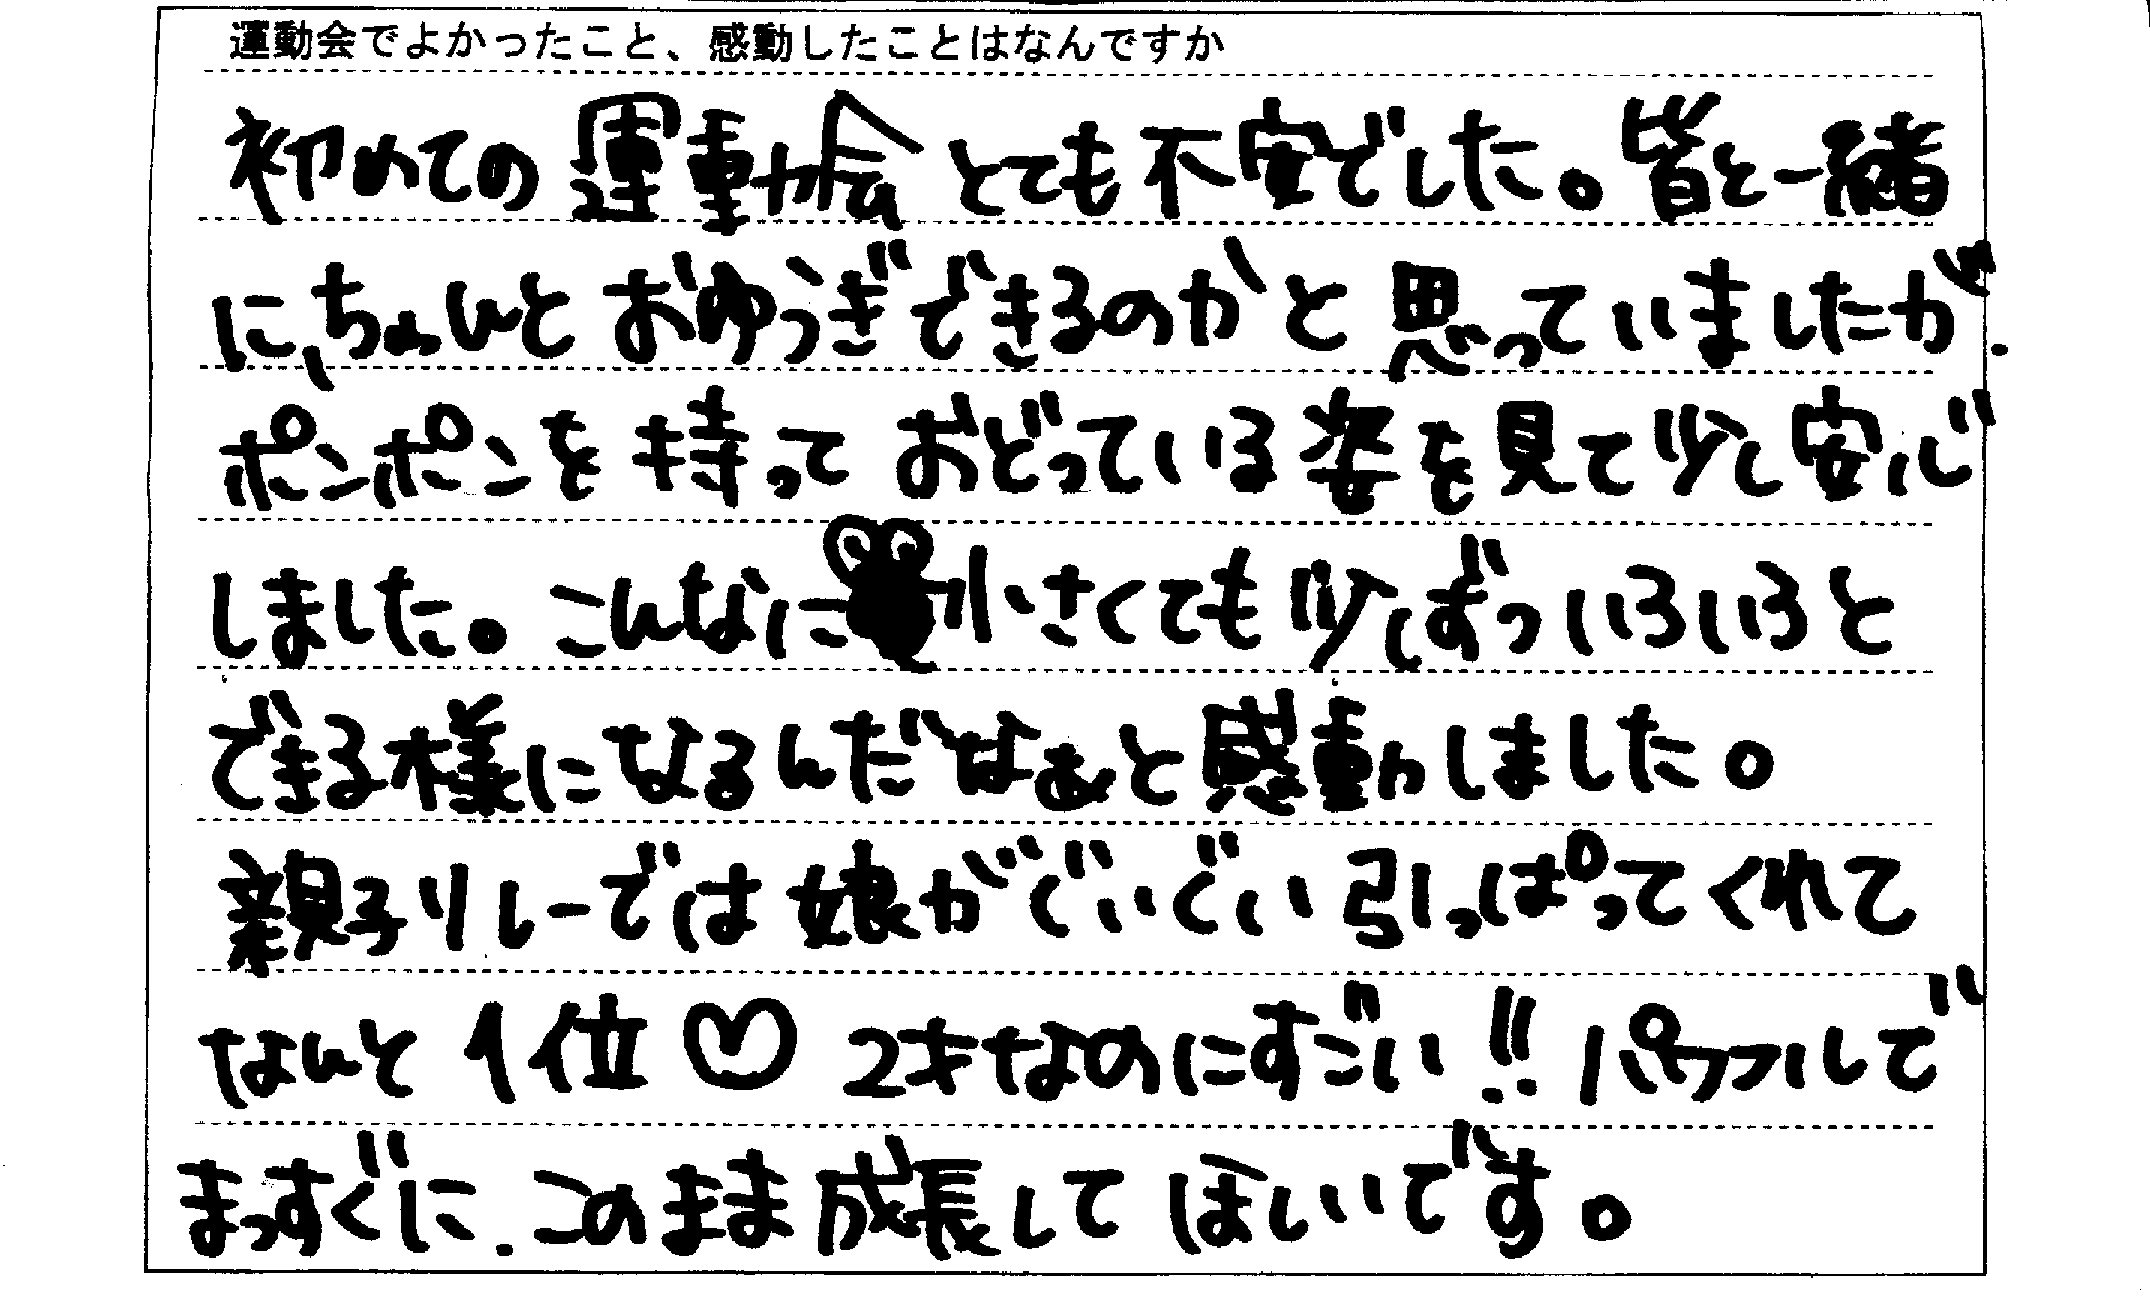 運動会でよかったこと、感動したことはなんですか
初めての運動会とても不安でした。皆と一緒
に、ちゃんとおゆうぎできるのかと思っていましたが、
ポンポンを持っておどっている姿を見て少し安心
しました。こんなに小さくても少しずついろいろと
できる様になるんだなぁと感動しました。
親子リレーでは娘がぐいぐい引っぱってくれて
なんと1位♡ 2才なのにすごい!! パワフルで
まっすぐに、このまま成長してほしいです。